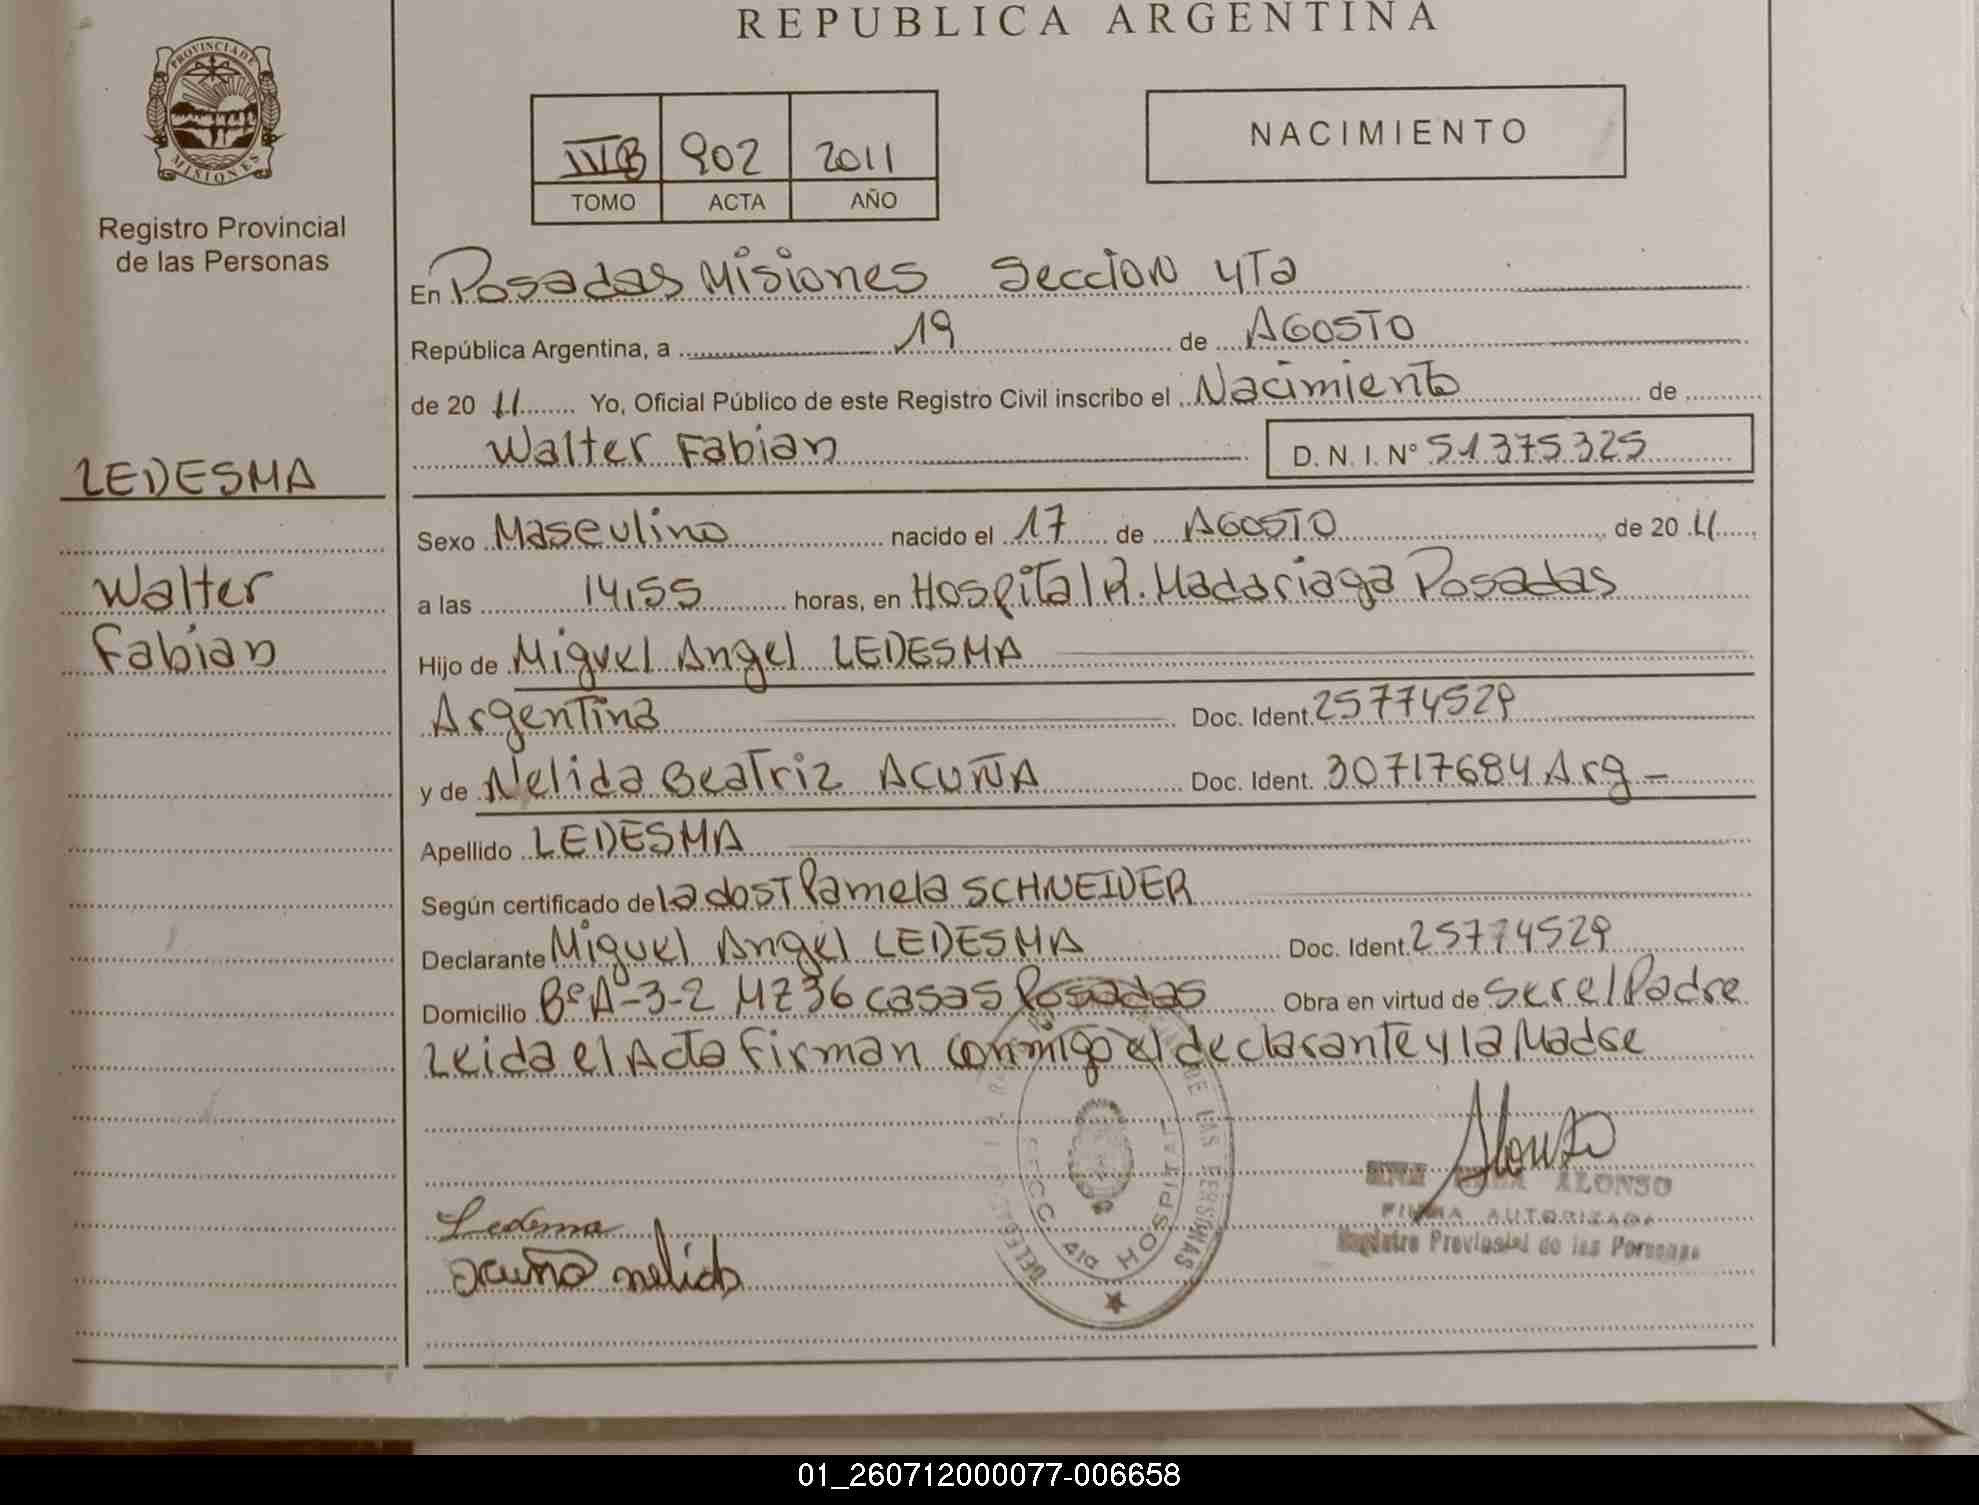 REPUBLICA ARGENTINA
PROVINCIA DE
MISIONES
Registro Provincial
de las Personas
902 2011
TOMO ACTA AÑO
NACIMIENTO
En Posadas Misiones Seccion 4Ta
República Argentina, a 19 de AGOSTO
de 20 11 Yo, Oficial Público de este Registro Civil inscribo el Nacimiento de
Walter Fabian D. N. I. Nº 51375325
LEDESMA
Walter
Fabian
Sexo Masculino nacido el 17 de AGOSTO de 20 11
a las 14,55 horas, en Hospital R. Madariaga Posadas
Hijo de Miguel Angel LEDESMA
Argentina Doc. Ident. 25774529
y de Nelida Beatriz ACUÑA Doc. Ident. 30717684 Arg -
Apellido LEDESMA
Según certificado de la dosT Pamela SCHNEIDER
Declarante Miguel Angel LEDESMA Doc. Ident. 25774529
Domicilio Bº A-3-2 MZ 36 casas Posadas Obra en virtud de Ser el Padre
Leida el Acta firman conmigo el declarante y la Madre
DE LAS PERSONAS
SECC 4ta HOSPITAL
Alonso
ALONSO
FIRMA AUTORIZADA
Registro Provincial de las Personas
Ledesma
acuña nelida
01_260712000077-006658